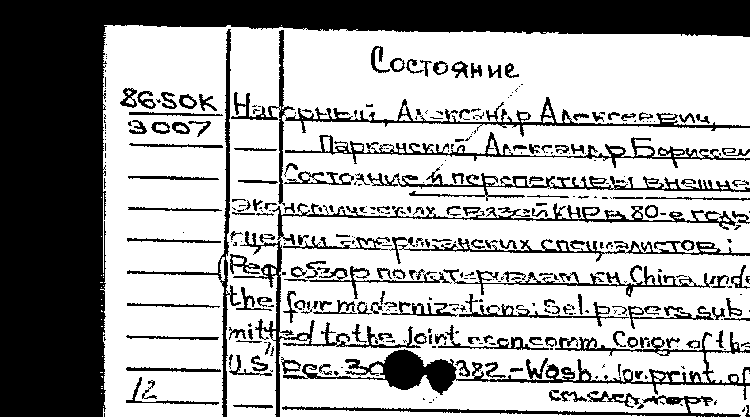 Состояние
86-SOK Нагорный, Александр Алексеевич,
3007
Парканский, Александр Борисови
Состояние и перспективы внешне
экономических связей КНР в 80-е годы
оценки американских специалистов:
(Реф. обзор по материалам кн. China unde
the four modernizations: Sel. papers sub-
mitted to the Joint econ. comm. Congr. of the
U.S. Dec. 30 1982. - Wash.: Gov. print. of
12 см. след. карт.